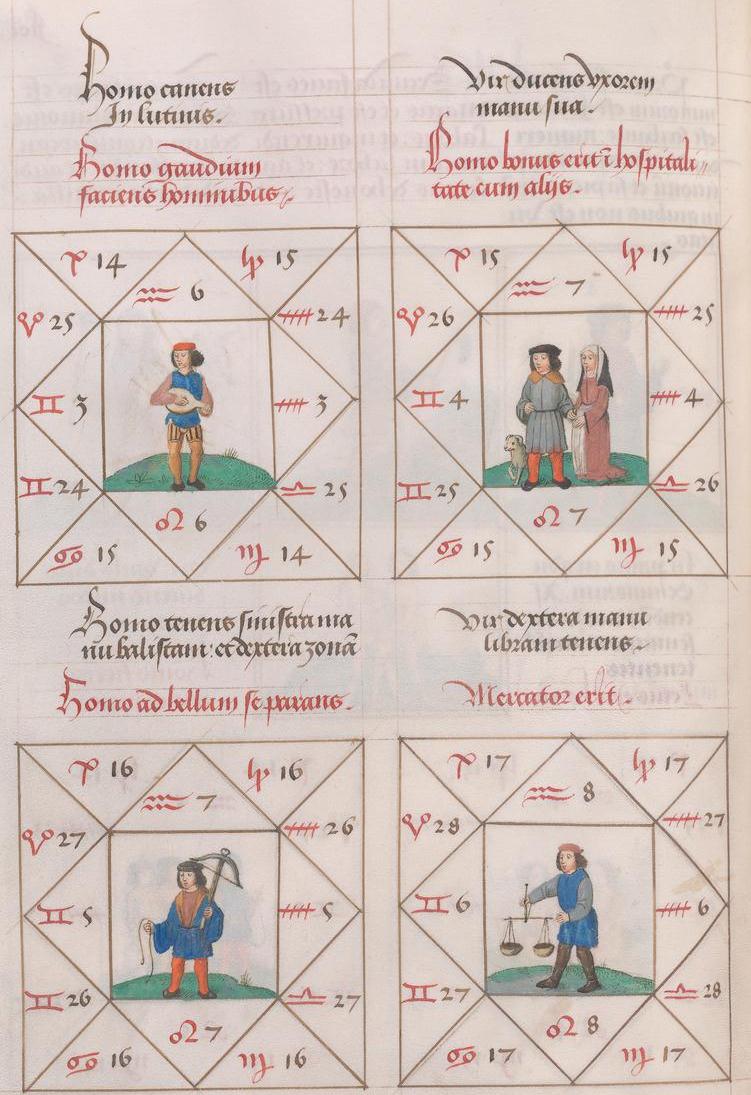 Homo canens
In lutinis.
Homo gaudium
faciens hominibus.
♈ 14
♑ 15
♒ 6
♉ 25
♐ 24
♊ 3
♐ 3
♊ 24
♎ 25
♌ 6
♋ 15
♍ 14
Vir ducens vxorem
manu sua.
Homo bonus erit ī hospitali-
tate cum alijs.
♈ 15
♑ 15
♒ 7
♉ 26
♐ 25
♊ 4
♐ 4
♊ 25
♎ 26
♌ 7
♋ 15
♍ 15
Homo tenens sinistra ma
nu balistam: et dextera zonā
Homo ad bellum se parans.
♈ 16
♑ 16
♒ 7
♉ 27
♐ 26
♊ 5
♐ 5
♊ 26
♎ 27
♌ 7
♋ 16
♍ 16
Vir dextera manu
libram tenens.
Mercator erit.
♈ 17
♑ 17
♒ 8
♉ 28
♐ 27
♊ 6
♐ 6
♊ 27
♎ 28
♌ 8
♋ 17
♍ 17